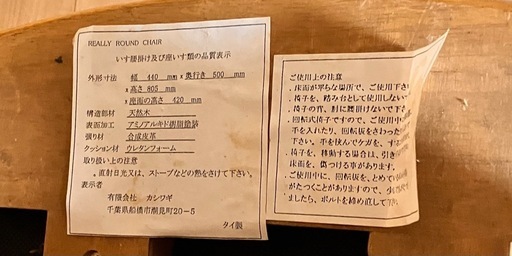 REALLY ROUND CHAIR
いす腰掛け及び座いす類の品質表示
外形寸法 幅 440 mm x 奥行き 500 mm
x 高さ 805 mm
x 座面の高さ 420 mm
構造部材 天然木
表面加工 アミノアルキド樹脂塗装
張り材 合成皮革
クッション材 ウレタンフォーム
取り扱い上の注意
直射日光又は、ストーブなどの熱をさけて下さい。
表示者
有限会社 カシワギ
千葉県船橋市潮見町20-5
タイ製
ご使用上の注意
・床面が平らな場所で、ご使用下さ
・椅子を、踏み台として使用しない
・椅子の背、肘に腰掛けないで下
・回転式椅子ですので、ご使用中
手を入れたり、回転板をさわった
下さい。手を挟んでケガを、する
・椅子を、移動する場合は、引き
床面を、傷つける事があります。
・ご使用中に、回転板を、とめてい
がたつくことがありますので、少し
ましたら、ボルトを締め直して下